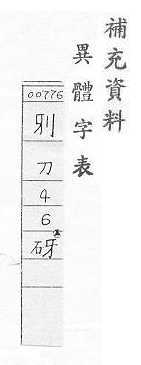 補充資料
異體字表
00776
刀
4
6
砑